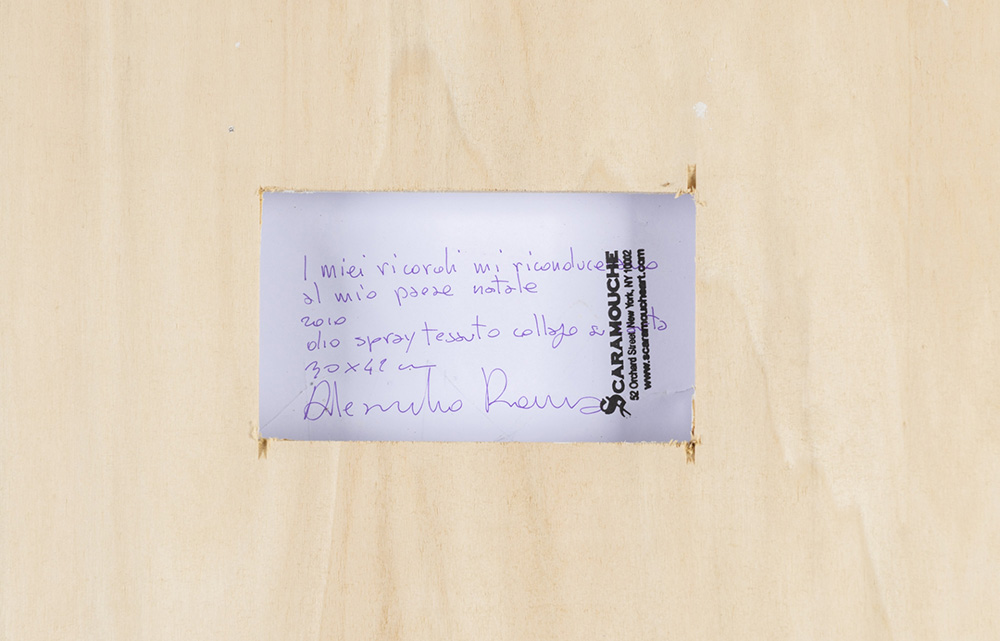 I miei ricordi mi riconducono
al mio paese natale
2010
olio spray tessuto collage su
30x42 cm
Alessandro Roma
SCARAMOUCHE
52 Orchard Street, New York, NY 10002
www.scaramoucheart.com